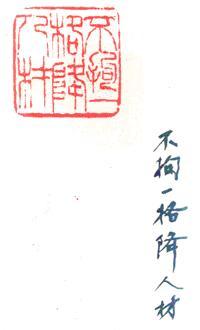 不拘一
格降
人材
不拘一格降人材